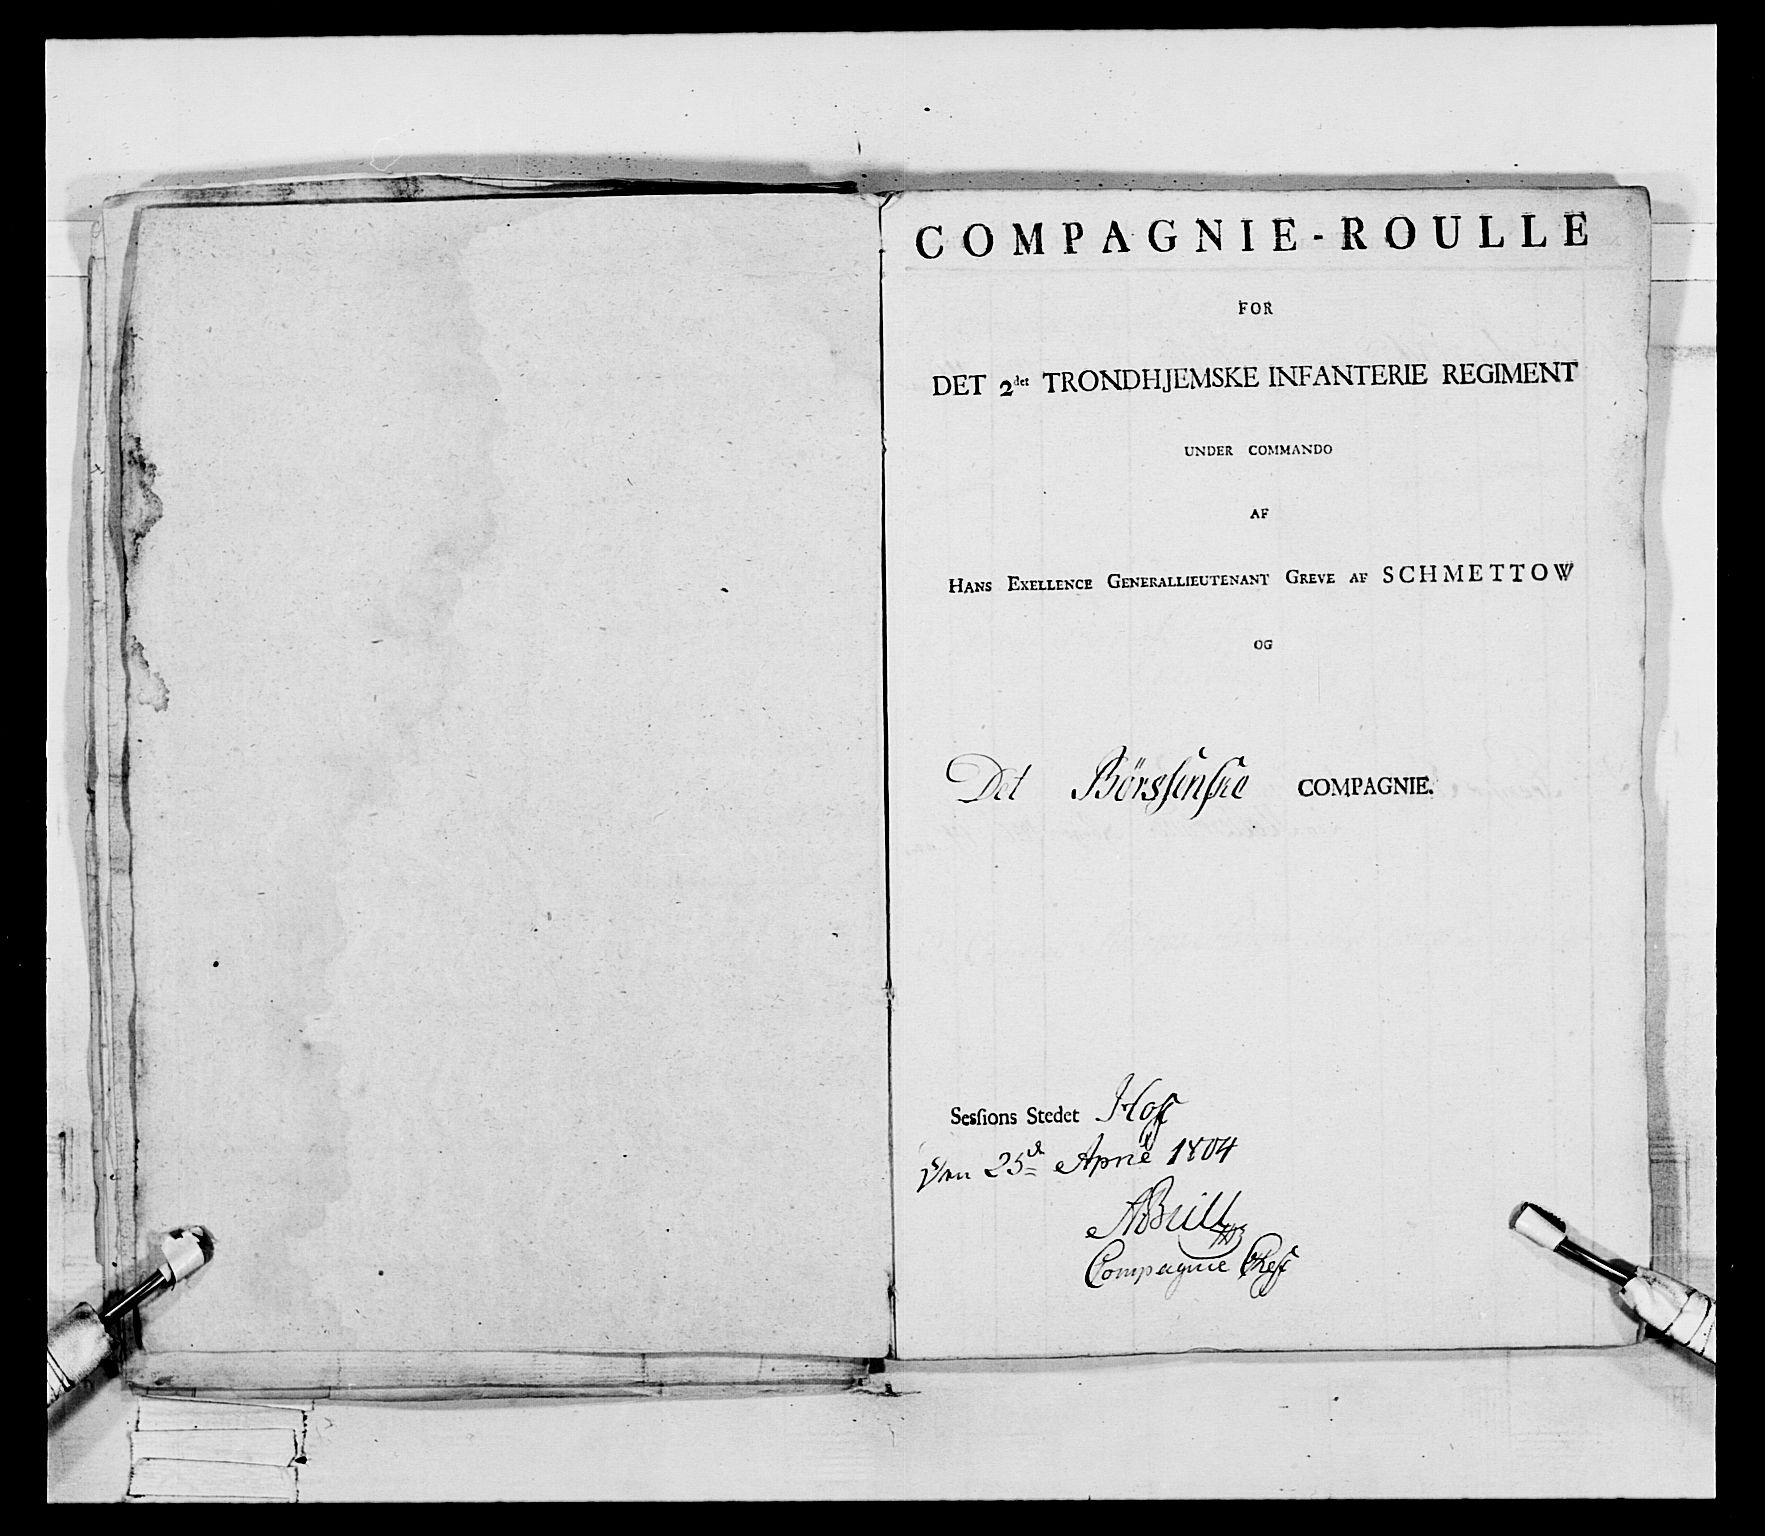 COMPAGNIE-ROULLE
FOR
DET 2det TRONDHJEMSKE INFANTERIE REGIMENT
UNDER COMMANDO
AF
HANS EXELLENCE GENERALLIEUTENANT GREVE AF SCHMETTOW
OG
Det Börssenske COMPAGNIE.
Sesſions Stedet Hoff
25de April 1804
Compagnie Chef